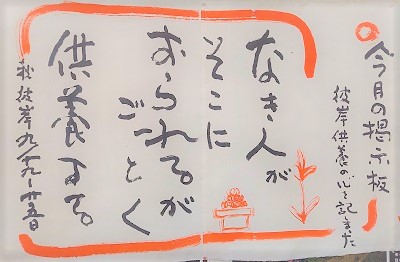 今月の掲示板
彼岸供養の心を記ました
なき人が
そこに
おられるが
ごとく
供養する。
秋彼岸九・十九〜廿五日